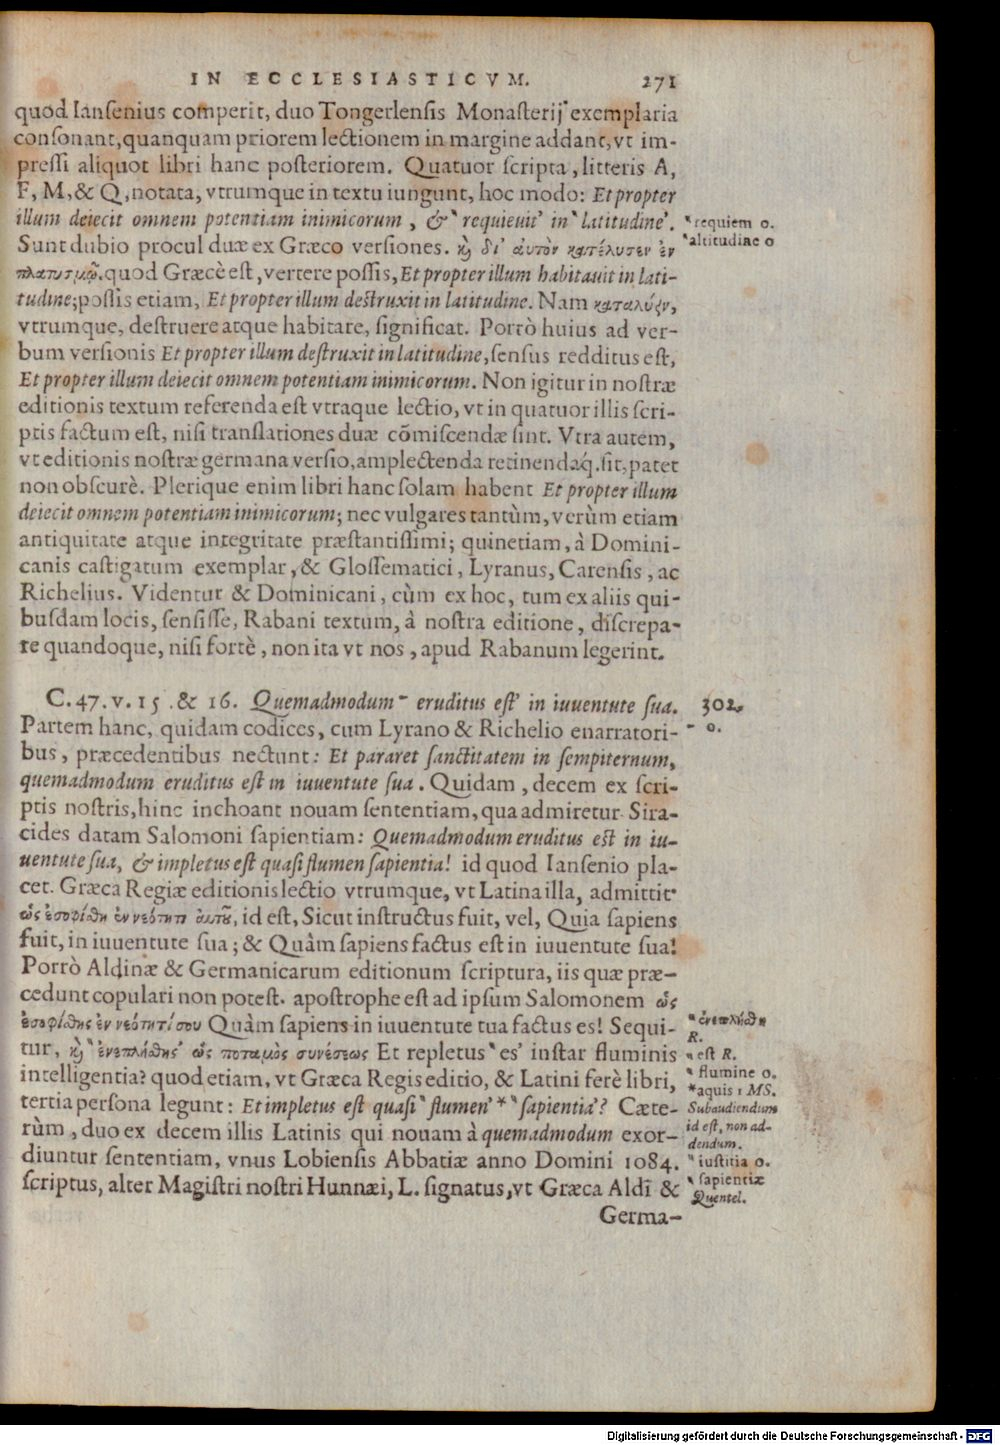 IN ECCLESIASTICVM. 271
quod Ianſenius comperit, duo Tongerlenſis Monaſterij exemplaria
conſonant, quanquam priorem lectionem in margine addant, vt im-
preſſi aliquot libri hanc poſteriorem. Quatuor ſcripta, litteris A,
F, M, & Q, notata, vtrumque in textu iungunt, hoc modo: Et propter
illum deiecit omnem potentiam inimicorum, & ‶ requieuit' in ‶ latitudine'.
‶ requiem o.
‶ altitudine o
Sunt dubio procul duæ ex Græco verſiones. κỳ δι' αυτὸν κατέλυσεν ἐν
πλατυσμῷ. quod Græcè eſt, vertere poſſis, Et propter illum habitauit in lati-
tudine; poſſis etiam, Et propter illum deſtruxit in latitudine. Nam καταλύειν,
vtrumque, deſtruere atque habitare, ſignificat. Porrò huius ad ver-
bum verſionis Et propter illum deſtruxit in latitudine, ſenſus redditus eſt,
Et propter illum deiecit omnem potentiam inimicorum. Non igitur in noſtræ
editionis textum referenda eſt vtraque lectio, vt in quatuor illis ſcri-
ptis factum eſt, niſi tranſlationes duæ cõmiſcendæ ſint. Vtra autem,
vt editionis noſtræ germana verſio, amplectenda retinendaq́. ſit, patet
non obſcurè. Plerique enim libri hanc ſolam habent Et propter illum
deiecit omnem potentiam inimicorum; nec vulgares tantùm, verùm etiam
antiquitate atque integritate præſtantiſſimi; quinetiam, à Domini-
canis caſtigatum exemplar, & Gloſſematici, Lyranus, Carenſis, ac
Richelius. Videntur & Dominicani, cùm ex hoc, tum ex aliis qui-
buſdam locis, ſenſiſſe, Rabani textum, à noſtra editione, diſcrepa-
re quandoque, niſi fortè, non ita vt nos, apud Rabanum legerint.
C. 47. v. 15 . & 16. Quemadmodum ⁻ eruditus eſt' in iuuentute ſua. 302.
Partem hanc, quidam codices, cum Lyrano & Richelio enarratori- ⁻ o.
bus, præcedentibus nectunt: Et pararet ſanctitatem in ſempiternum,
quemadmodum eruditus eſt in iuuentute ſua. Quidam, decem ex ſcri-
ptis noſtris, hinc inchoant nouam ſententiam, qua admiretur Sira-
cides datam Salomoni ſapientiam: Quemadmodum eruditus eſt in iu-
uentute ſua, & impletus eſt quaſi flumen ſapientia! id quod Ianſenio pla-
cet. Græca Regiæ editionis lectio vtrumque, vt Latina illa, admittit
ὡς ἐσοφίσθη ἐν νεότητι αὐτοῦ, id eſt, Sicut inſtructus fuit, vel, Quia ſapiens
fuit, in iuuentute ſua; & Quàm ſapiens factus eſt in iuuentute ſua!
Porrò Aldinæ & Germanicarum editionum ſcriptura, iis quæ præ-
cedunt copulari non poteſt. apoſtrophe eſt ad ipſum Salomonem ὡς
ἐσοφίσθης ἐν νεότητί σου Quàm ſapiens in iuuentute tua factus es! Sequi-
‶ ἐνεπλήσθη R.
tur, κỳ ‶ ἐνεπλήσθης' ὡς ποταμὸς συνέσεως Et repletus ‶ es' inſtar fluminis
‶ eſt R.
intelligentia? quod etiam, vt Græca Regis editio, & Latini ferè libri,
‶ flumine o.
*aquis 1 MS.
tertia perſona legunt: Et impletus eſt quaſi ‶ flumen' * ‶ ſapientia'? Cæte-
Subaudiendum
rùm, duo ex decem illis Latinis qui nouam à quemadmodum exor-
id eſt, non ad-
dendum.
diuntur ſententiam, vnus Lobienſis Abbatiæ anno Domini 1084.
‶ iuſtitia o.
ſcriptus, alter Magiſtri noſtri Hunnæi, L. ſignatus, vt Græca Aldi &
‶ ſapientiæ
Quentel.
Germa-
Digitalisierung gefördert durch die Deutsche Forschungsgemeinschaft - DFG